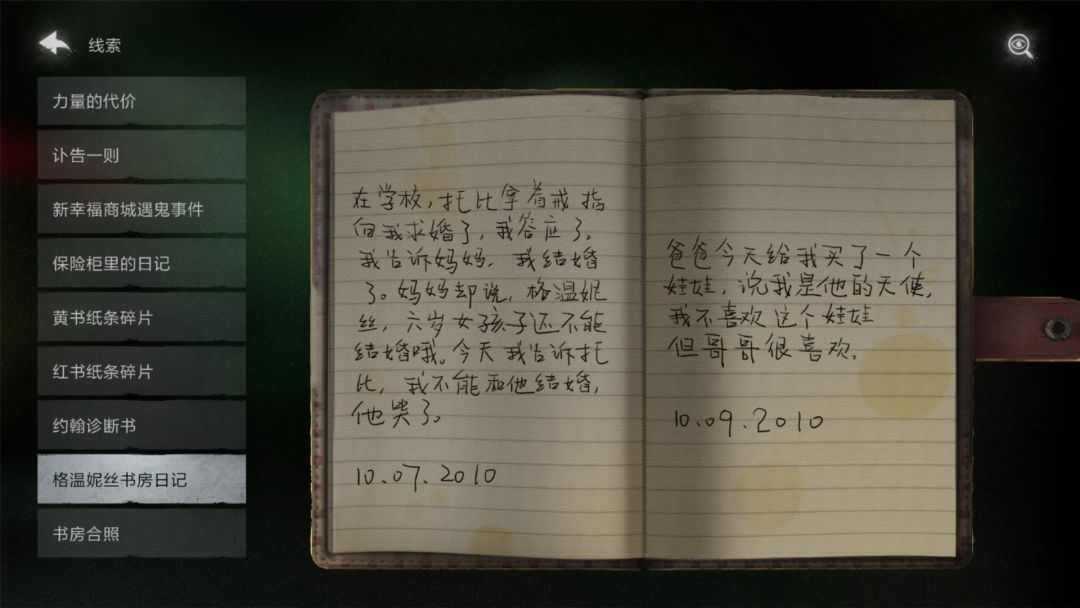 线索
力量的代价
讣告一则
新幸福商城遇鬼事件
保险柜里的日记
黄书纸条碎片
红书纸条碎片
约翰诊断书
格温妮丝书房日记
书房合照
在学校,托比拿着戒指
向我求婚了,我答应了。
我告诉妈妈,我结婚
了。妈妈却说,格温妮
丝,六岁女孩子还不能
结婚哦。今天我告诉托
比,我不能和他结婚,
他哭了。
10.07.2010
爸爸今天给我买了一个
娃娃,说我是他的天使,
我不喜欢这个娃娃
但哥哥很喜欢.
10.09.2010